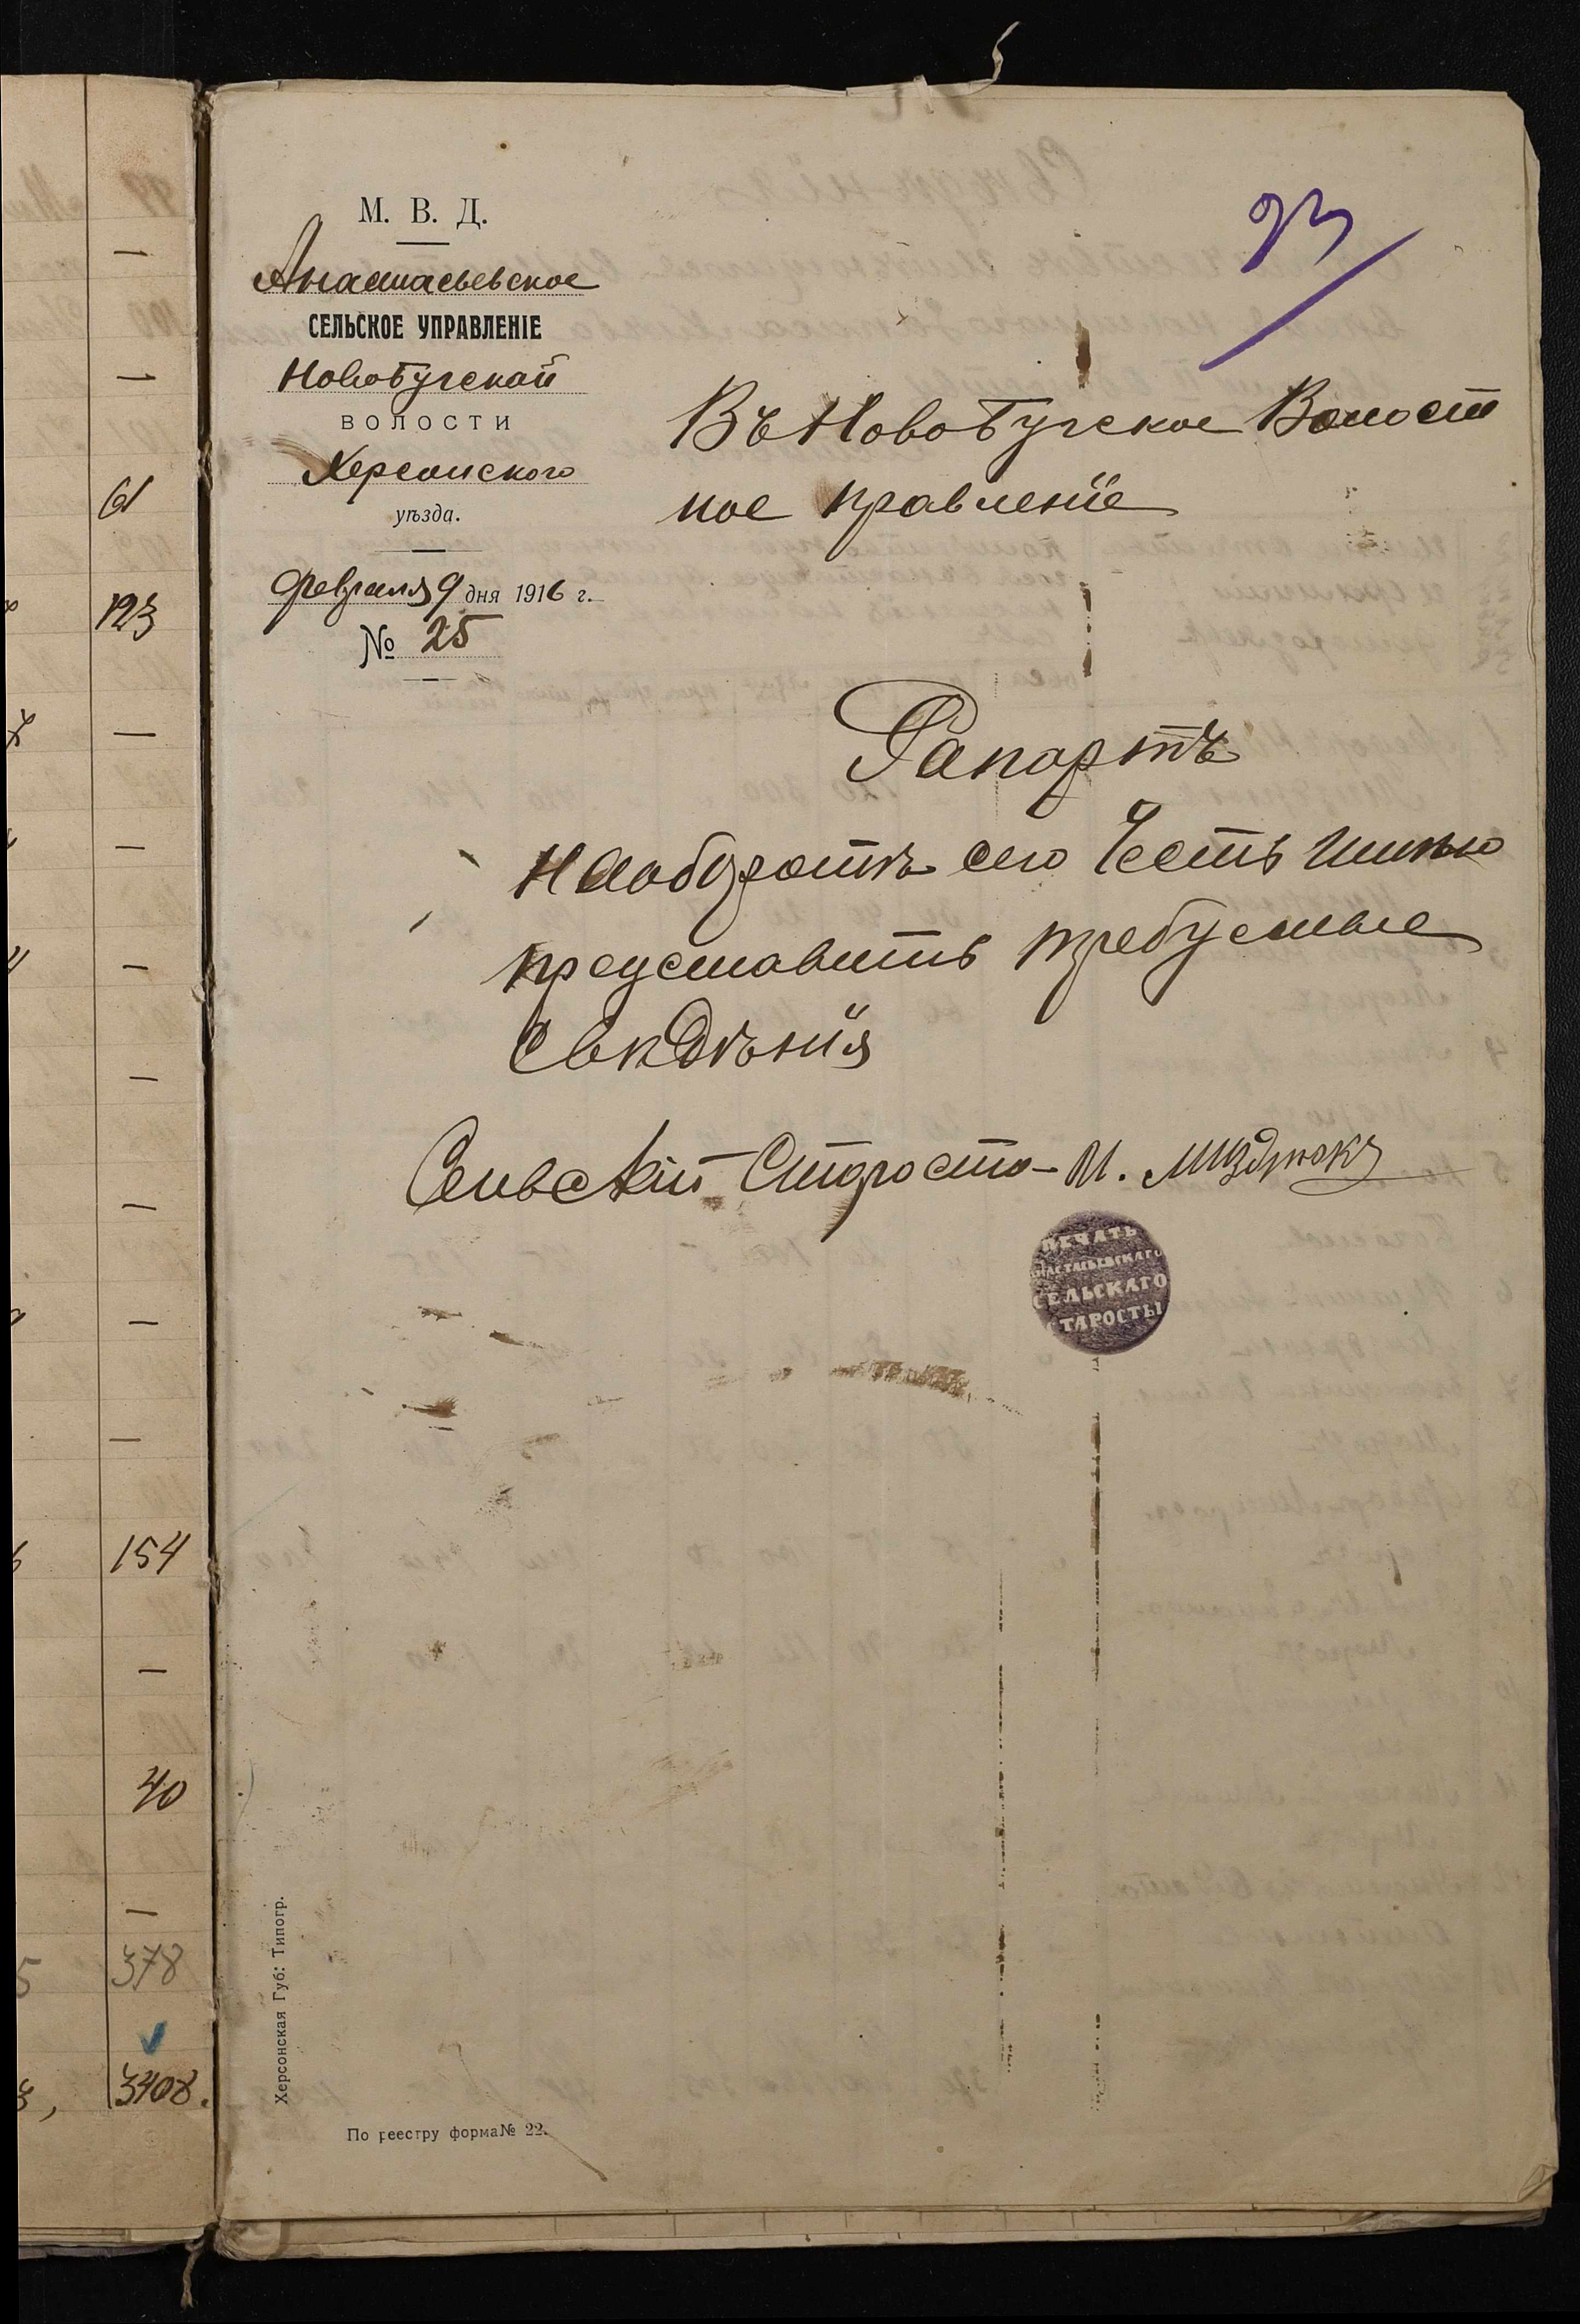 М. В. Д.
Анастасьевское
СЕЛЬСКОЕ УПРАВЛЕНІЕ
НовоБугской
ВОЛОСТИ
Херсонского
уѣзда.
Февраля 9 дня 1916 г.
№ 25
93
Въ НовоБугское Волост
ное правленіе
Рапортъ
На оборотѣ сего Честь имѣю
представить требуемые
Свѣдѣнія
Сельскій Староста - И.
ПЕЧАТЬ
АНАСТАСЬЕВСКАГО
СЕЛЬСКАГО
СТАРОСТЫ
Херсонская Губ: Типогр.
По реестру форма № 22.
61
123
154
40
378
3408.